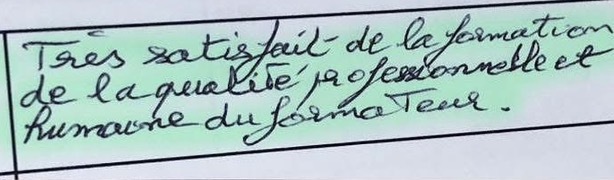 Très satisfait de la formation
de la qualité professionnelle et
humaine du formateur.